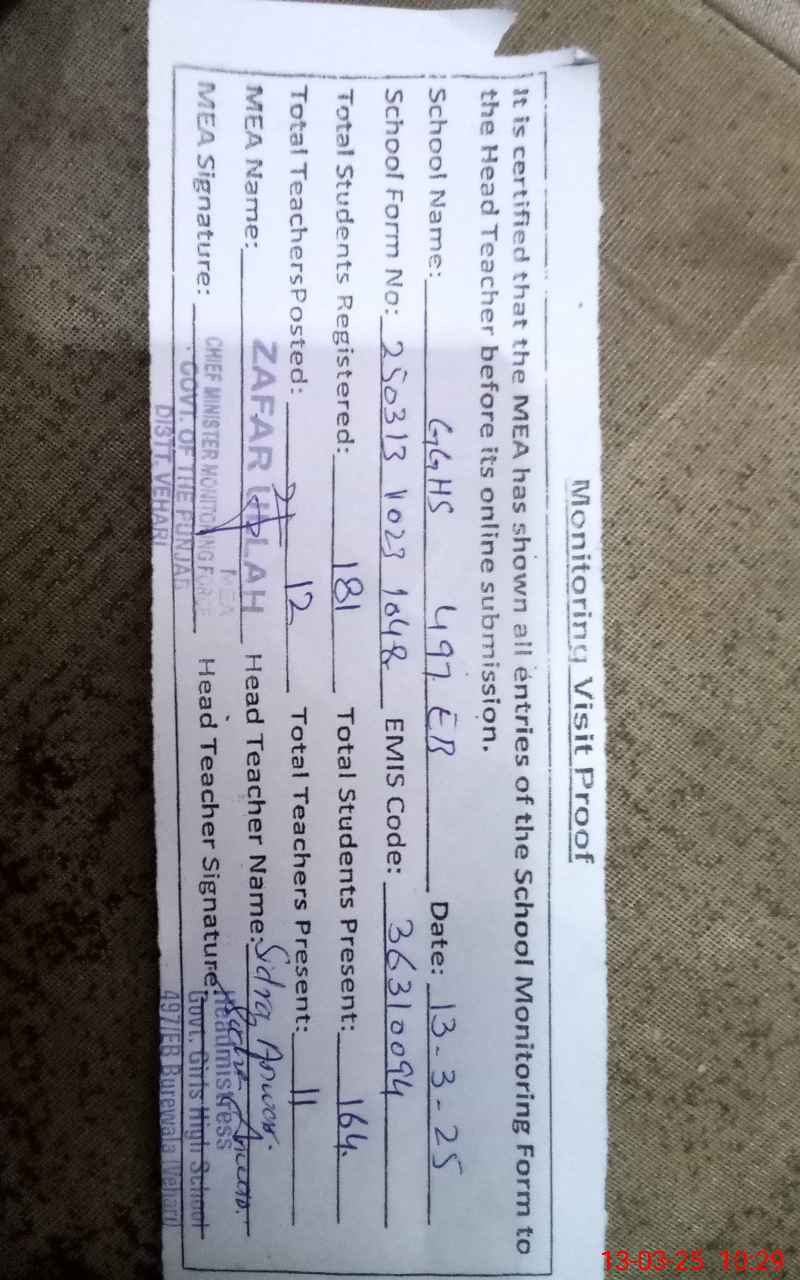 Monitoring Visit Proof
It is certified that the MEA has shown all entries of the School Monitoring Form to
the Head Teacher before its online submission.
School Name: GGHS 497 EB Date: 13-3-25
School Form No: 250313 1029 1048 EMIS Code: 36310094
Total Students Registered: 181 Total Students Present: 164.
Total TeachersPosted: 12 Total Teachers Present: 11
MEA Name: ZAFAR ULLAH Head Teacher Name: Sidra Anwar.
MEA
MEA Signature: Head Teacher Signature: Sidra Anwar.
CHIEF MINISTER MONITORING FORCE
GOVT. OF THE PUNJAB
DISTT. VEHARI
Headmistress
Govt. Girls High School
497/EB Burewala (Vehari)
13-03-25 10:29